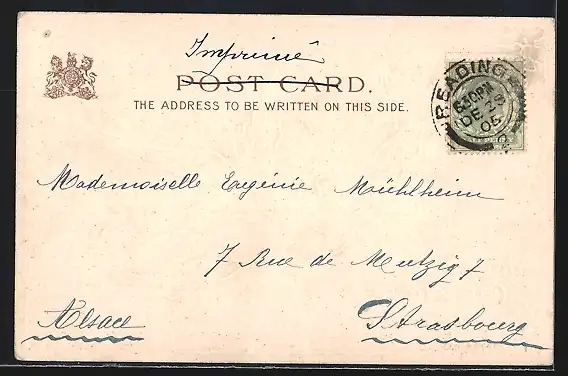 Imprimé
POST CARD.
THE ADDRESS TO BE WRITTEN ON THIS SIDE.
READING
6 30 PM
DE 23
05
Mademoiselle Eugénie Mühlheim
7 Rue de Mutzig 7
Alsace Strasbourg